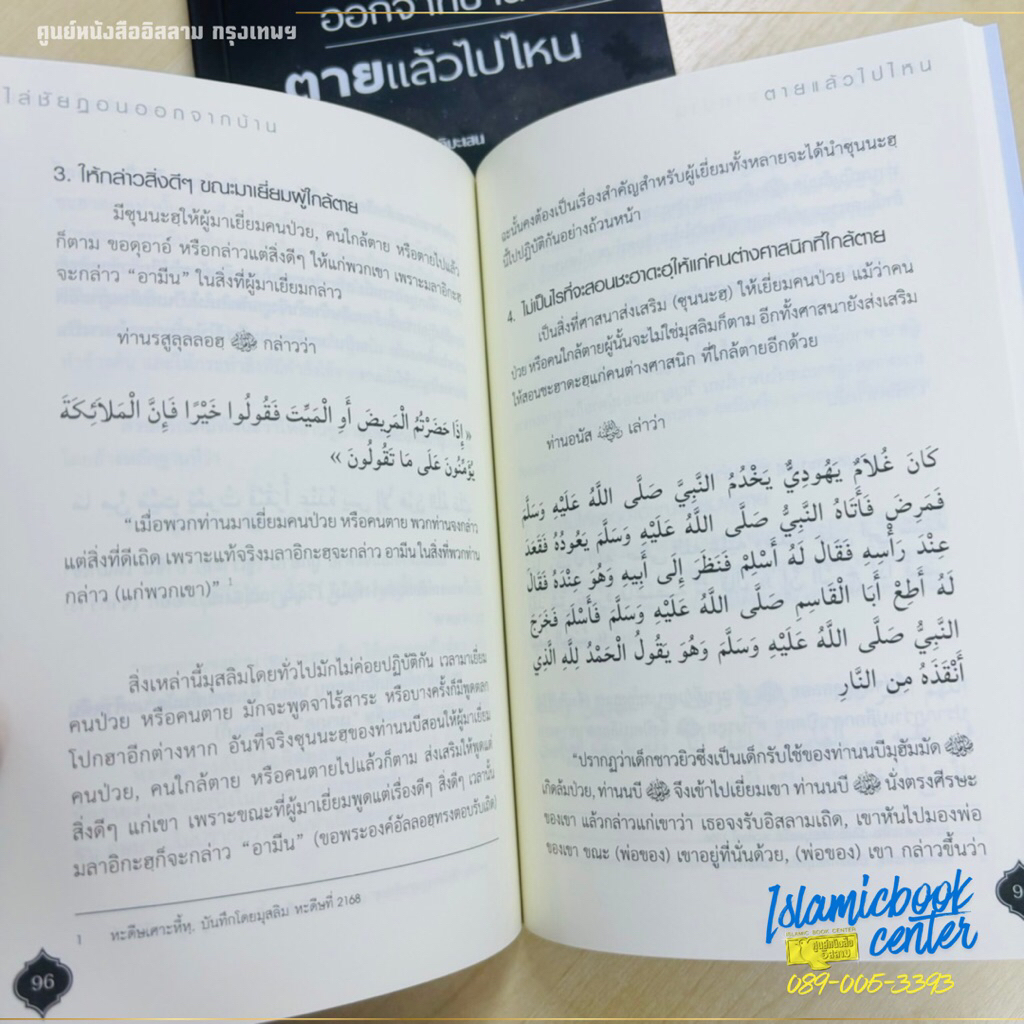 ศูนย์หนังสืออิสลาม กรุงเทพฯ
ตายแล้วไปไหน
ไล่ชัยฏอนออกจากบ้าน
3. ให้กล่าวสิ่งดีๆ ขณะมาเยี่ยมผู้ใกล้ตาย
มีซุนนะฮฺให้ผู้มาเยี่ยมคนป่วย, คนใกล้ตาย หรือตายไปแล้ว
ก็ตาม ขอดุอาอ์ หรือกล่าวแต่สิ่งดีๆ ให้แก่พวกเขา เพราะมลาอิกะฮฺ
จะกล่าว “อามีน” ในสิ่งที่ผู้มาเยี่ยมกล่าว
ท่านรสูลุลลอฮฺ ﷺ กล่าวว่า
« إِذَا حَضَرْتُمُ الْمَرِيضَ أَوِ الْمَيِّتَ فَقُولُوا خَيْرًا فَإِنَّ الْمَلاَئِكَةَ
يُؤَمِّنُونَ عَلَى مَا تَقُولُونَ »
“เมื่อพวกท่านมาเยี่ยมคนป่วย หรือคนตาย พวกท่านจงกล่าว
แต่สิ่งที่ดีเถิด เพราะแท้จริงมลาอิกะฮฺจะกล่าว อามีน ในสิ่งที่พวกท่าน
กล่าว (แก่พวกเขา)” 1
สิ่งเหล่านี้มุสลิมโดยทั่วไปมักไม่ค่อยปฏิบัติกัน เวลามาเยี่ยม
คนป่วย หรือคนตาย มักจะพูดจาไร้สาระ หรือบางครั้งก็มีพูดตลก
โปกฮาอีกต่างหาก อันที่จริงซุนนะฮฺของท่านนบีสอนให้ผู้มาเยี่ยม
คนป่วย, คนใกล้ตาย หรือคนตายไปแล้วก็ตาม ส่งเสริมให้พูดแต่
สิ่งดีๆ แก่เขา เพราะขณะที่ผู้มาเยี่ยมพูดแต่เรื่องดีๆ สิ่งดีๆ เวลานั้น
มลาอิกะฮฺก็จะกล่าว “อามีน” (ขอพระองค์อัลลอฮฺทรงตอบรับเถิด)
1 หะดีษเศาะหี้หฺ. บันทึกโดยมุสลิม หะดีษที่ 2168
96
ตายแล้วไปไหน
ฉะนั้นคงต้องเป็นเรื่องสำคัญสำหรับผู้เยี่ยมทั้งหลายจะได้นำซุนนะฮฺ
นี้ไปปฏิบัติกันอย่างถ้วนหน้า
4. ไม่เป็นไรที่จะสอนชะฮาดะฮฺให้แก่คนต่างศาสนิกที่ใกล้ตาย
เป็นสิ่งที่ศาสนาส่งเสริม (ซุนนะฮฺ) ให้เยี่ยมคนป่วย แม้ว่าคน
ป่วย หรือคนใกล้ตายผู้นั้นจะไม่ใช่มุสลิมก็ตาม อีกทั้งศาสนายังส่งเสริม
ให้สอนชะฮาดะฮฺแก่คนต่างศาสนิก ที่ใกล้ตายอีกด้วย
ท่านอนัส เล่าว่า
كَانَ غُلاَمٌ يَهُودِيٌّ يَخْدُمُ النَّبِيَّ صَلَّى اللَّهُ عَلَيْهِ وَسَلَّمَ
فَمَرِضَ فَأَتَاهُ النَّبِيُّ صَلَّى اللَّهُ عَلَيْهِ وَسَلَّمَ يَعُودُهُ فَقَعَدَ
عِنْدَ رَأْسِهِ فَقَالَ لَهُ أَسْلِمْ فَنَظَرَ إِلَى أَبِيهِ وَهُوَ عِنْدَهُ فَقَالَ
لَهُ أَطِعْ أَبَا الْقَاسِمِ صَلَّى اللَّهُ عَلَيْهِ وَسَلَّمَ فَأَسْلَمَ فَخَرَجَ
النَّبِيُّ صَلَّى اللَّهُ عَلَيْهِ وَسَلَّمَ وَهُوَ يَقُولُ الْحَمْدُ لِلَّهِ الَّذِي
أَنْقَذَهُ مِنَ النَّارِ
“ปรากฏว่าเด็กชาวยิวซึ่งเป็นเด็กรับใช้ของท่านนบีมุฮัมมัด ﷺ
เกิดล้มป่วย, ท่านนบี ﷺ จึงเข้าไปเยี่ยมเขา ท่านนบี ﷺ นั่งตรงศีรษะ
ของเขา แล้วกล่าวแก่เขาว่า เธอจงรับอิสลามเถิด, เขาหันไปมองพ่อ
ของเขา ขณะ (พ่อของ) เขาอยู่ที่นั่นด้วย, (พ่อของ) เขา กล่าวขึ้นว่า
Islamicbook
center
ISLAMIC BOOK CENTER
ศูนย์หนังสือ
อิสลาม
089-005-3393